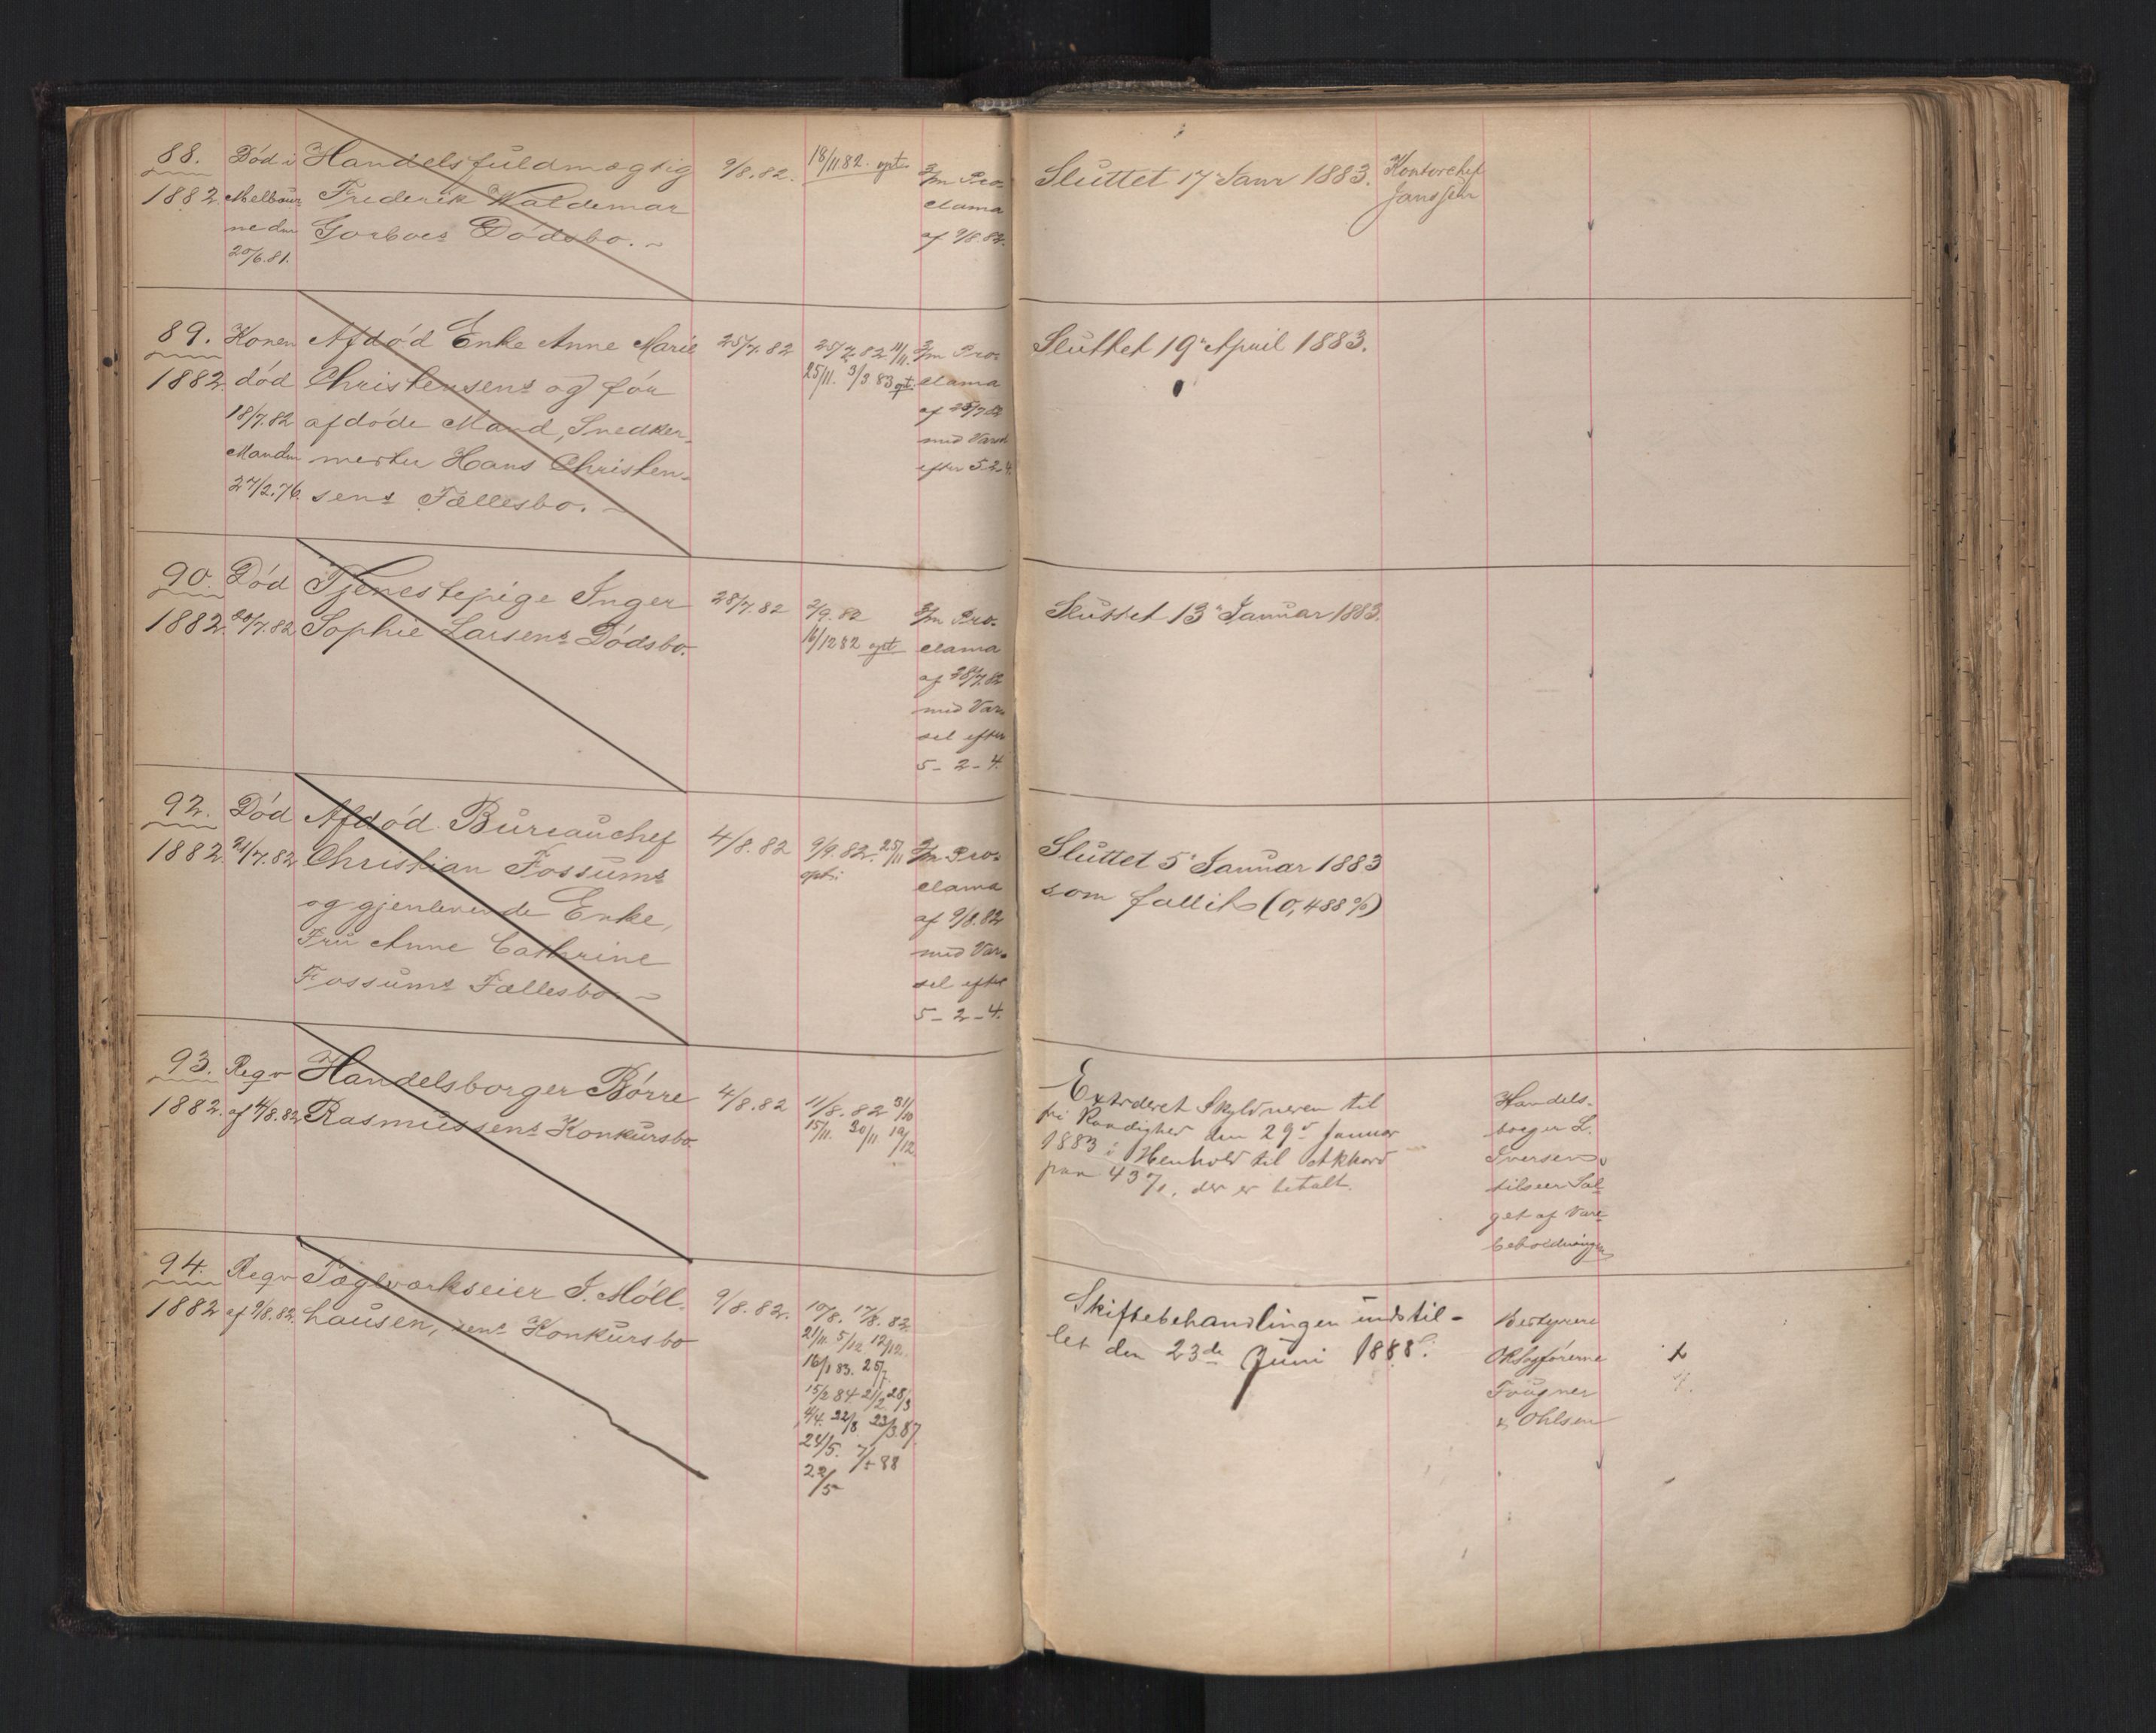 88.
1882.
Død i
Melbour
ne den
20/6.81.
Handelsfuldmægtig
Frederik Waldemar
Dødsbo.
9/8.82.
18/11 82. opt.
3/m Pro-
clama
af 9/8.82.
Sluttet 17 Janr 1883.
Kontorchef
Janssen
89.
1882.
Konen
død
18/7.82
Manden
27/2.76.
Afdød Enke Anne Marie
Christensens og før
afdøde Mand, Snedker-
mester Hans Christen-
sens Fællesbo.
25/7.82
25/7.82 11/11.
25/11. 3/3.83 opt.
3/m Pro-
clama
af 25/7 82
med Varsel
efter 5-2-4.
Sluttet 19 April 1883.
90.
1882.
Død
20/7.82
Tjenestepige Inger
Sophie Larsens Dødsbo.
28/7.82
2/9.82
16/12 82 opt.
3/m Pro-
clama
af 28/7.82
med Var-
sel efter
5-2-4.
Sluttet 13 Januar 1883.
92.
1882.
Død
21/7.82
Afdød Bureauchef
Christian Fossums
og gjenlevende Enke,
Fru Anne Cathrine
Fossums Fællesbo.
4/8.82
9/9.82. 25/11
opt.
3/m Pro-
clama
af 9/8.82
med Var-
sel efter
5-2-4.
Sluttet 5 Januar 1883
som fallit (0,488 %)
93.
1882.
Reqv
af 4/8.82
Handelsborger Børre
Rasmussens Konkursbo.
4/8.82
11/8.82 31/10
15/11. 30/11 19/12
Extraderet Skyldneren til
fri Raadighed den 29 Januar
1883 i Henhold til Akkord
paa 43 %, der er betalt.
Handels-
borger L.
Iversen
tilseer Sal-
get af Vare-
beholdningen
94.
1882
Reqv
af 9/8.82.
Teglværkseier J. Møll-
hausen, sens Konkursbo
9/8.82.
10/8. 17/8. 82.
21/11 5/12 12/12.
16/1 83. 25/7.
15/2 84 21/2 28/3
4/4. 22/8 23/3.87
24/5. 7/5 88
22/5
Skiftebehandlingen indstil-
let den 23de Juni 1888.
Bestyrere
ORSagførerne
Fougner
& Ohlsen